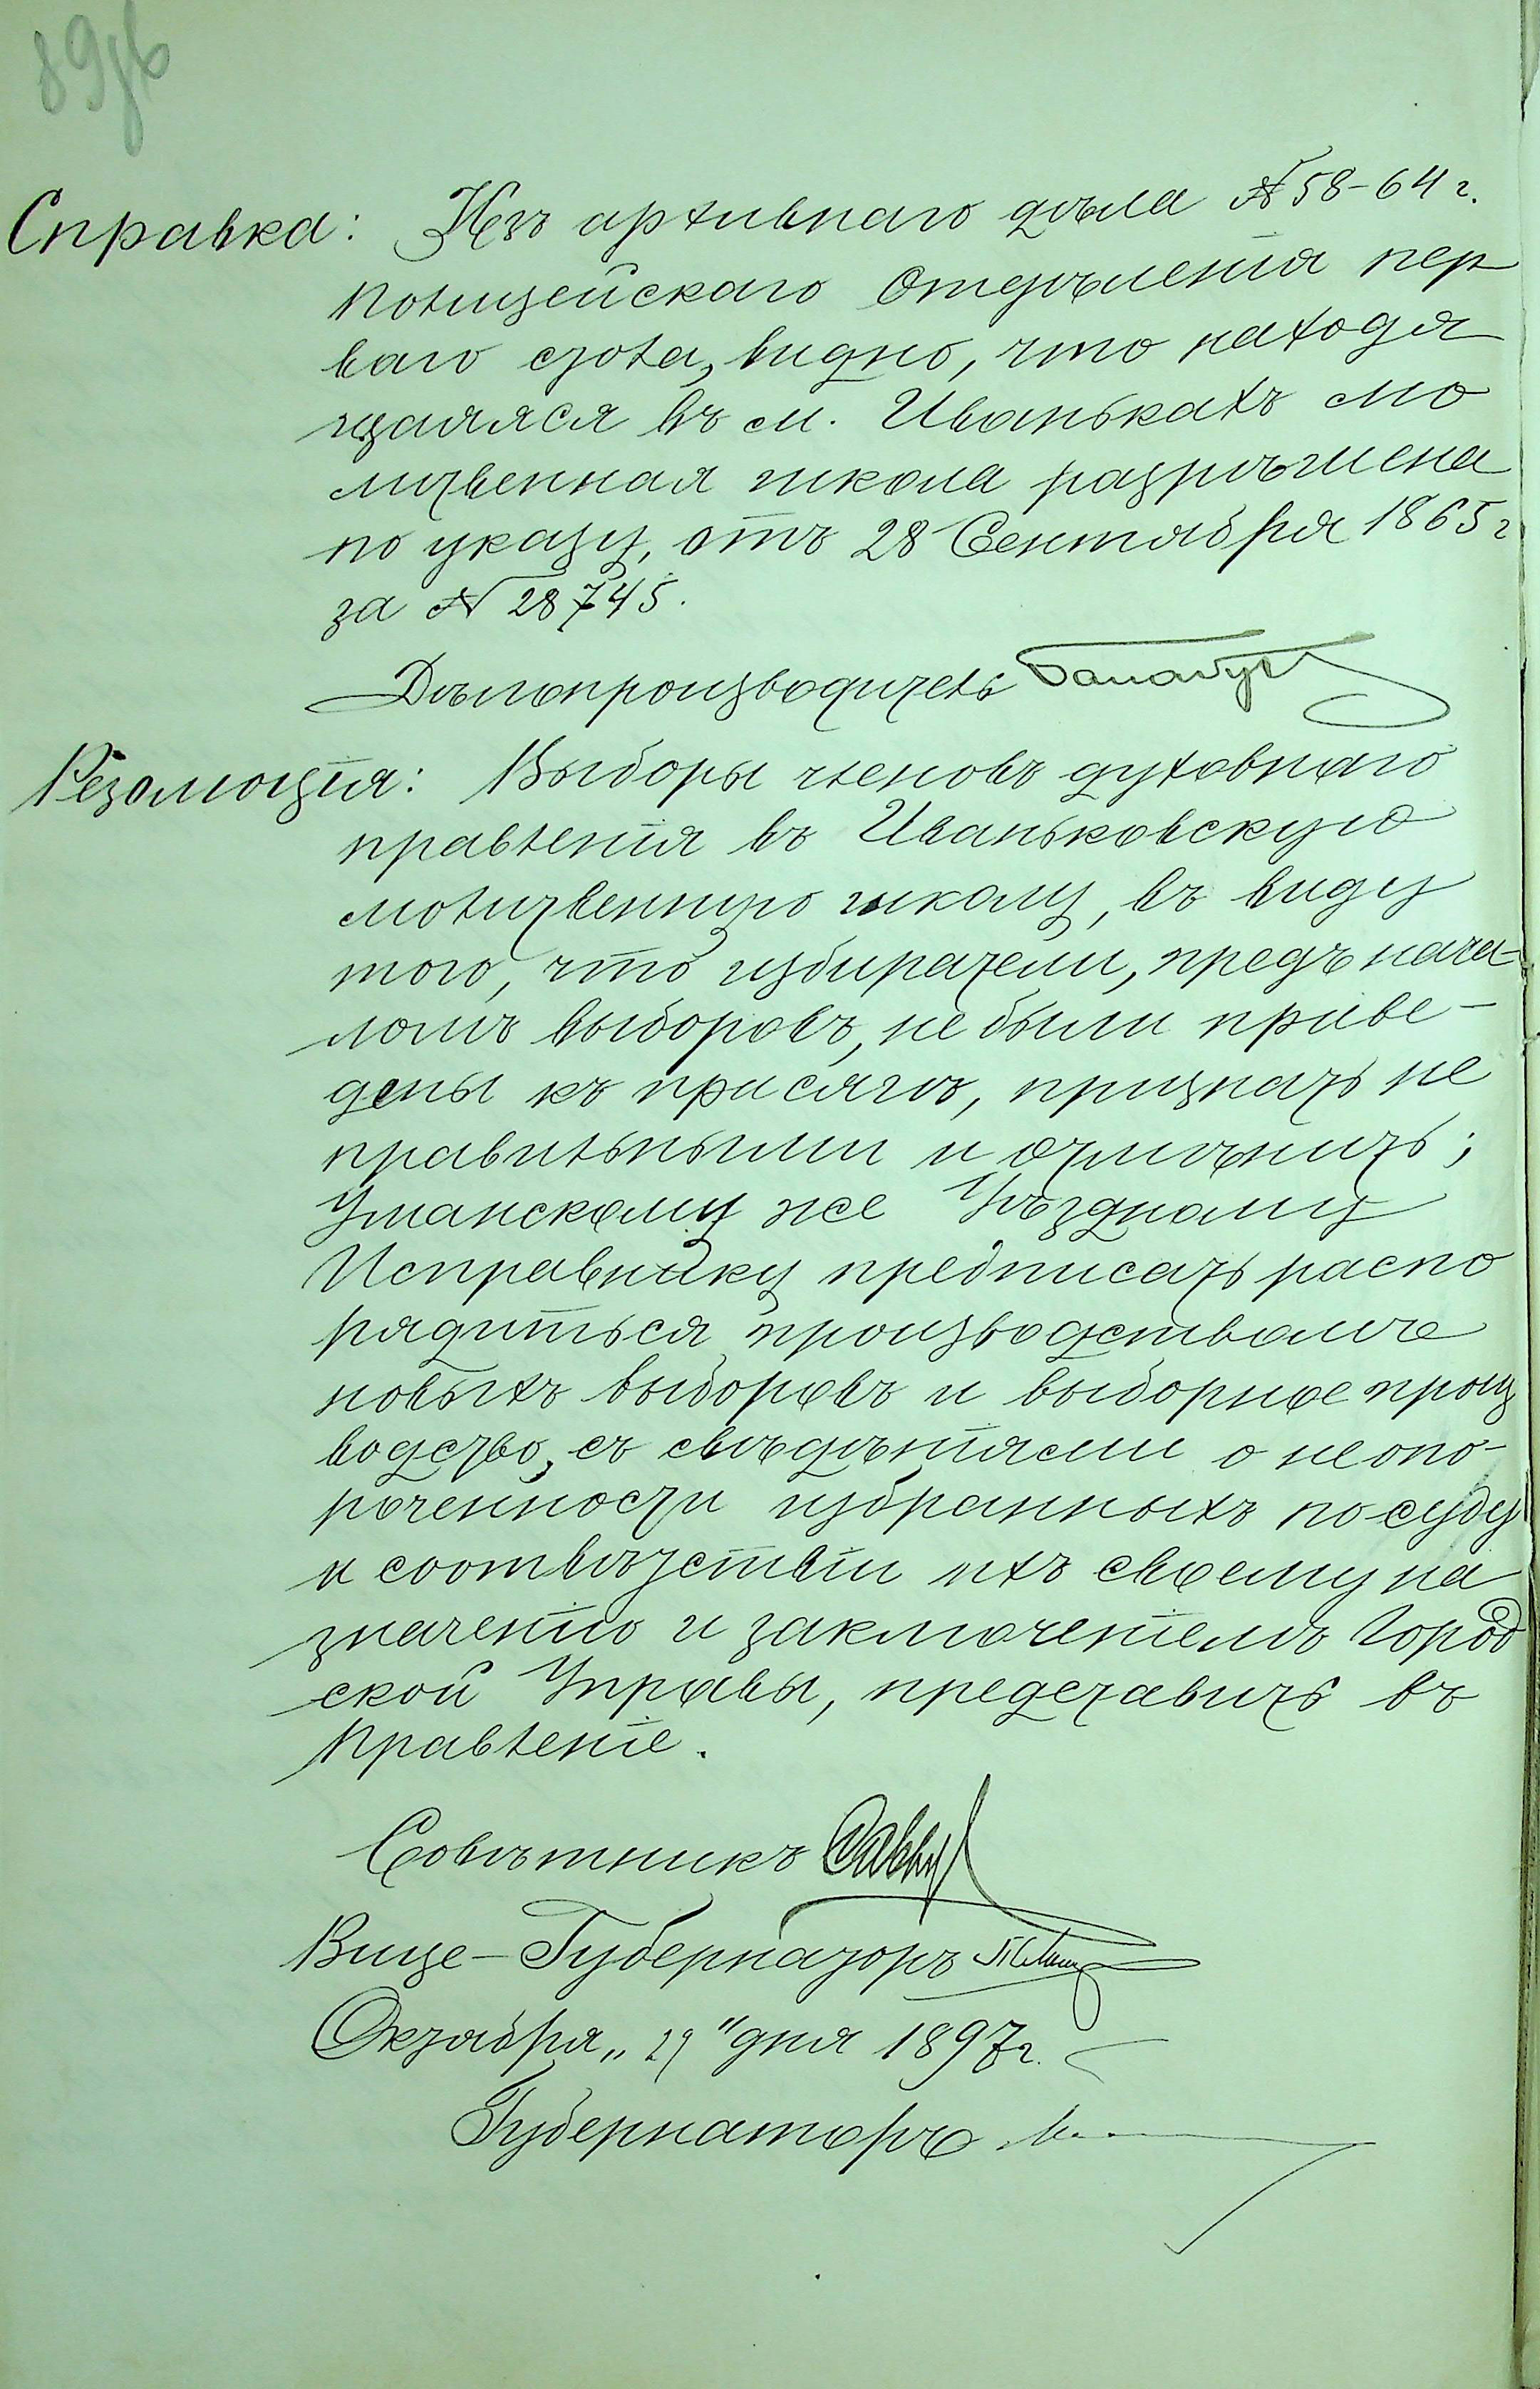 Справка: Изъ архивнаго дѣла № 58-64 г.
Полицейскаго Отдѣленія пер
ваго стола, видно, что находя
щаяся въ м. Иванькахъ мо
литвенная школа разрѣшена
по указу, отъ 28 Сентября 1865 г
за № 28745.
Дѣлопроизводитель
Резолюція: Выборы членовъ духовнаго
правленія въ Иваньковскую
молитвенную школу, въ виду
того, что избиратели, предъ нача-
ломъ выборовъ, не были приве-
дены къ присягѣ, признать не
правильными и отмѣнить;
Уманскому же Уѣздному
Исправнику предписать распо
рядиться производствомъ
новыхъ выборовъ и выборное произ
водство, съ свѣдѣніями о неопо-
роченности избранныхъ по суду
и соотвѣтствіи ихъ своему на
значенію и заключеніемъ Город
ской Управы, представить въ
Правленіе.
Совѣтникъ
Вице-Губернаторъ
Октября „29" дня 1897 г.
Губернаторъ